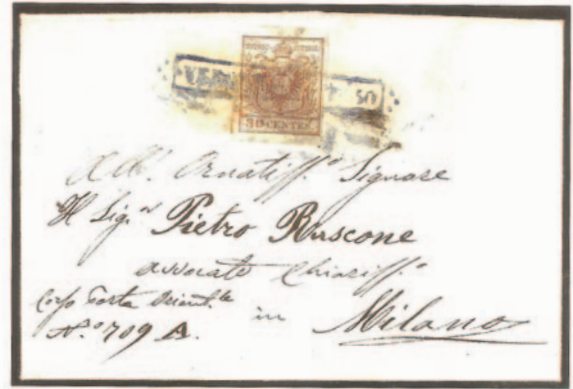 30 CENTES.
All'. Ornatiss.º Signore
Il Sig.r Pietro Ruscone
Avvocato Chiariss.º
Corso Porta Orient.le
N.º 709 A.
in Milano